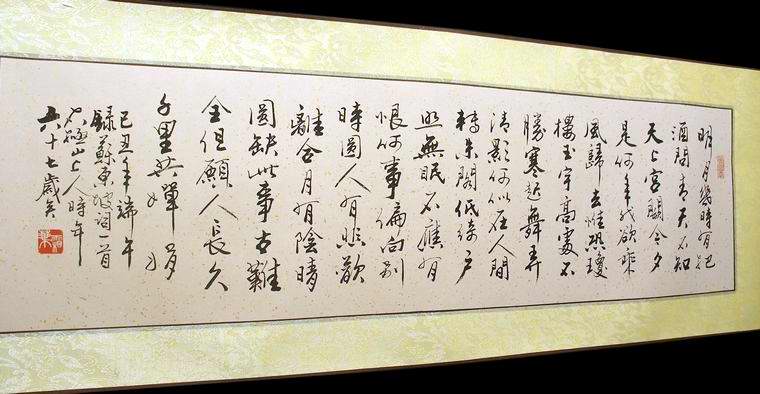 明月幾時有把
酒問青天不知
天上宮闕今夕
是何年我欲乘
風歸去惟恐瓊
樓玉宇高處不
勝寒起舞弄
清影何似在人間
轉朱閣低綺戶
照無眠不應有
恨何事偏向別
時圓人有悲歡
離合月有陰晴
圓缺此事古難
全但願人長久
千里共嬋娟
己丑年端午
錄蘇東坡詞一首
極山上人時年
六十七歲矣